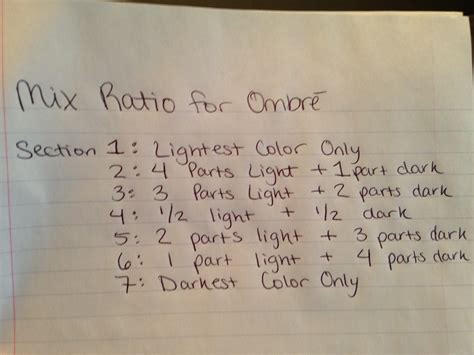 Mix Ratio for Ombrē
Section 1: Lightest Color Only
2: 4 Parts Light + 1 part dark
3: 3 Parts Light + 2 parts dark
4: 1/2 light + 1/2 dark
5: 2 parts light + 3 parts dark
6: 1 part light + 4 parts dark
7: Darkest Color Only